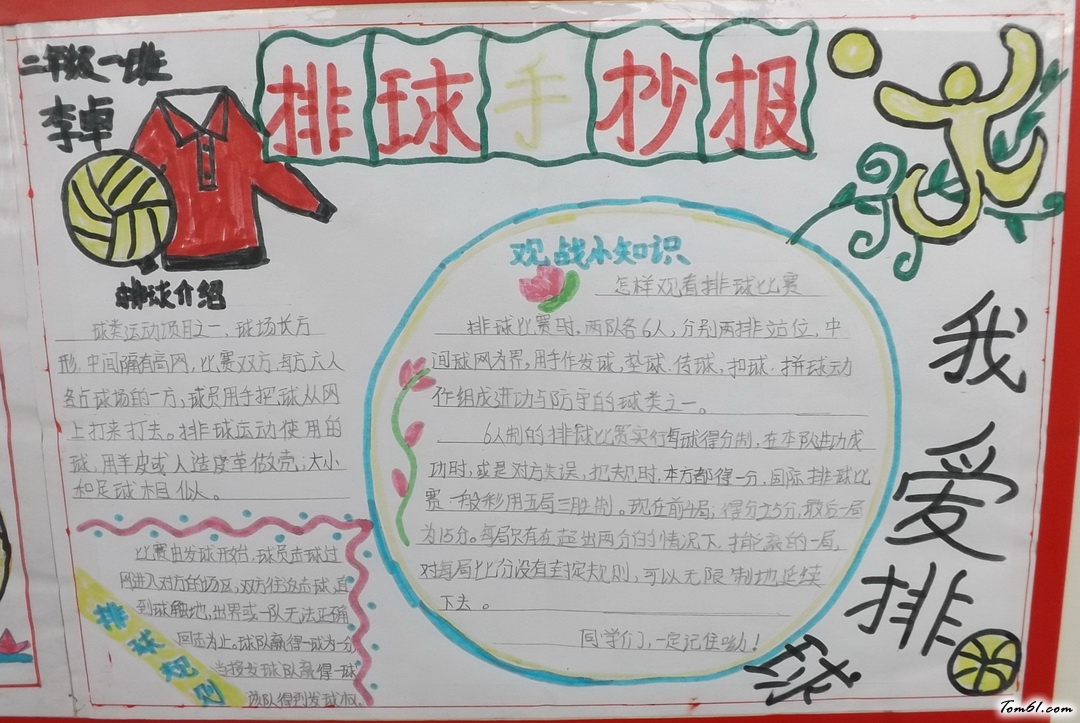 二年级一班
李卓
排球手抄报
排球介绍
球类运动项目之一，球场长方
形，中间隔有高网，比赛双方每方六人
各占球场的一方，球员用手把球从网
上打来打去。排球运动使用的
球，用羊皮或人造皮革做壳；大小
和足球相似。
比赛由发球开始，球员击球过
网进入对方的场区，双方往返击球，直
到球触地，出界或一队无法正确
回击为止。球队赢得一球为一分
当接发球队赢得一球
该队得到发球权。
排球规则
观战小知识
怎样观看排球比赛
排球比赛时，两队各6人，分别两排站位，中
间球网为界，用手作发球、垫球、传球，扣球、拼球动
作组成进功与防守的球类之一。
6人制的排球比赛实行每球得分制，在本队进功成
功时，或是对方失误，犯规时，本方都得一分，国际排球比
赛一般利用五局三胜制。现在前4局；得分25分，最后一局
为15分。每局只有在超出两分的情况下，才能赢的一局，
对每局比分没有封定规则，可以无限制地延续
下去。
同学们，一定记住呦！
我爱排球
Tom61.com